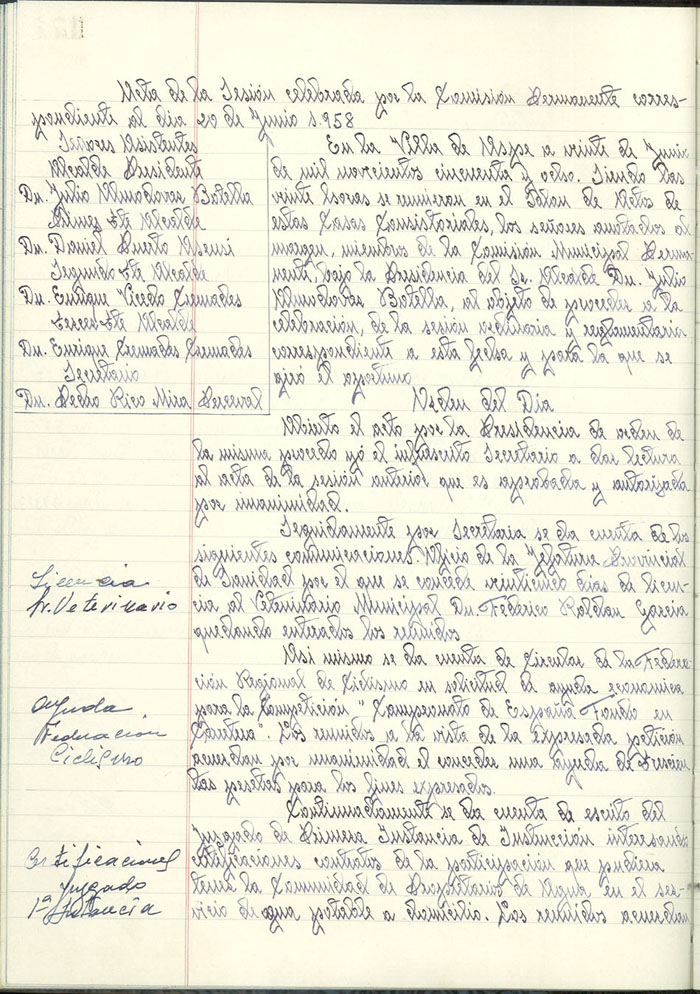 Acta de la Sesión celebrada por la Comisión Permanente corres-
pondiente al día 20 de Junio 1.958
Señores Asistentes
Alcalde Presidente
Dn. Julio Almodovar Botella
Primer Tte Alcalde
Dn. Daniel Puerto Asensi
Segundo Tte Alcalde
Dn. Enrique Vicedo Cremades
Tercer Tte Alcalde
Dn. Enrique Cremades Cremades
Secretario
Dn. Pedro Rico Mira Perceval
En la Villa de Aspe a veinte de Junio
de mil novecientos cincuenta y ocho. Siendo las
veinte horas se reunieron en el Salon de Actos de
estas Casas Consistoriales, los señores anotados al
margen, miembros de la Comisión Municipal Perma-
nente, bajo la Presidencia del Sr. Alcalde Dn. Julio
Almodovar Botella, al objeto de proceder a la
celebración, de la sesión ordinaria y reglamentaria
correspondiente a esta fecha y para la que se
giró el oportuno
Orden del Dia
Abierto el acto por la Presidencia de orden de
la misma procedo yó el infrescrito Secretario a dar lectura
al acta de la sesión anterior que es aprobada y autorizada
por unanimidad.
Seguidamente por Secretaria se da cuenta de los
siguientes communicaciones. Oficio de la Jefatura Provincial
de Sanidad por el que se concede veinticinco dias de licen-
cia al Veterinario Municipal Dn. Federico Roldan Garcia
quedando enterados los reunidos
Licencia
Sr. Veterinario
Asi mismo se da cuenta de Circular de la Federa-
ción Regional de Ciclismo en solicitud de ayuda economica
para la Competición "Campeonato de España Fondo en
Carretera". Los reunidos a la vista de la expresada petición
acuerdan por unanimidad el conceder una ayuda de trescien-
tas pesetas para los fines expresados.
Ayuda
Federación
Ciclismo
Continuadamente se da cuenta de escrito del
Juzgado de Primera Instancia de Instrucción interesando
contratos de la participación que pudiera
tener la Communidad de Propietarios de Agua en el ser-
vicio de agua potable a domicilio. Los reunidos acuerdan
Certificaciones
Juzgado
1ª Instancia